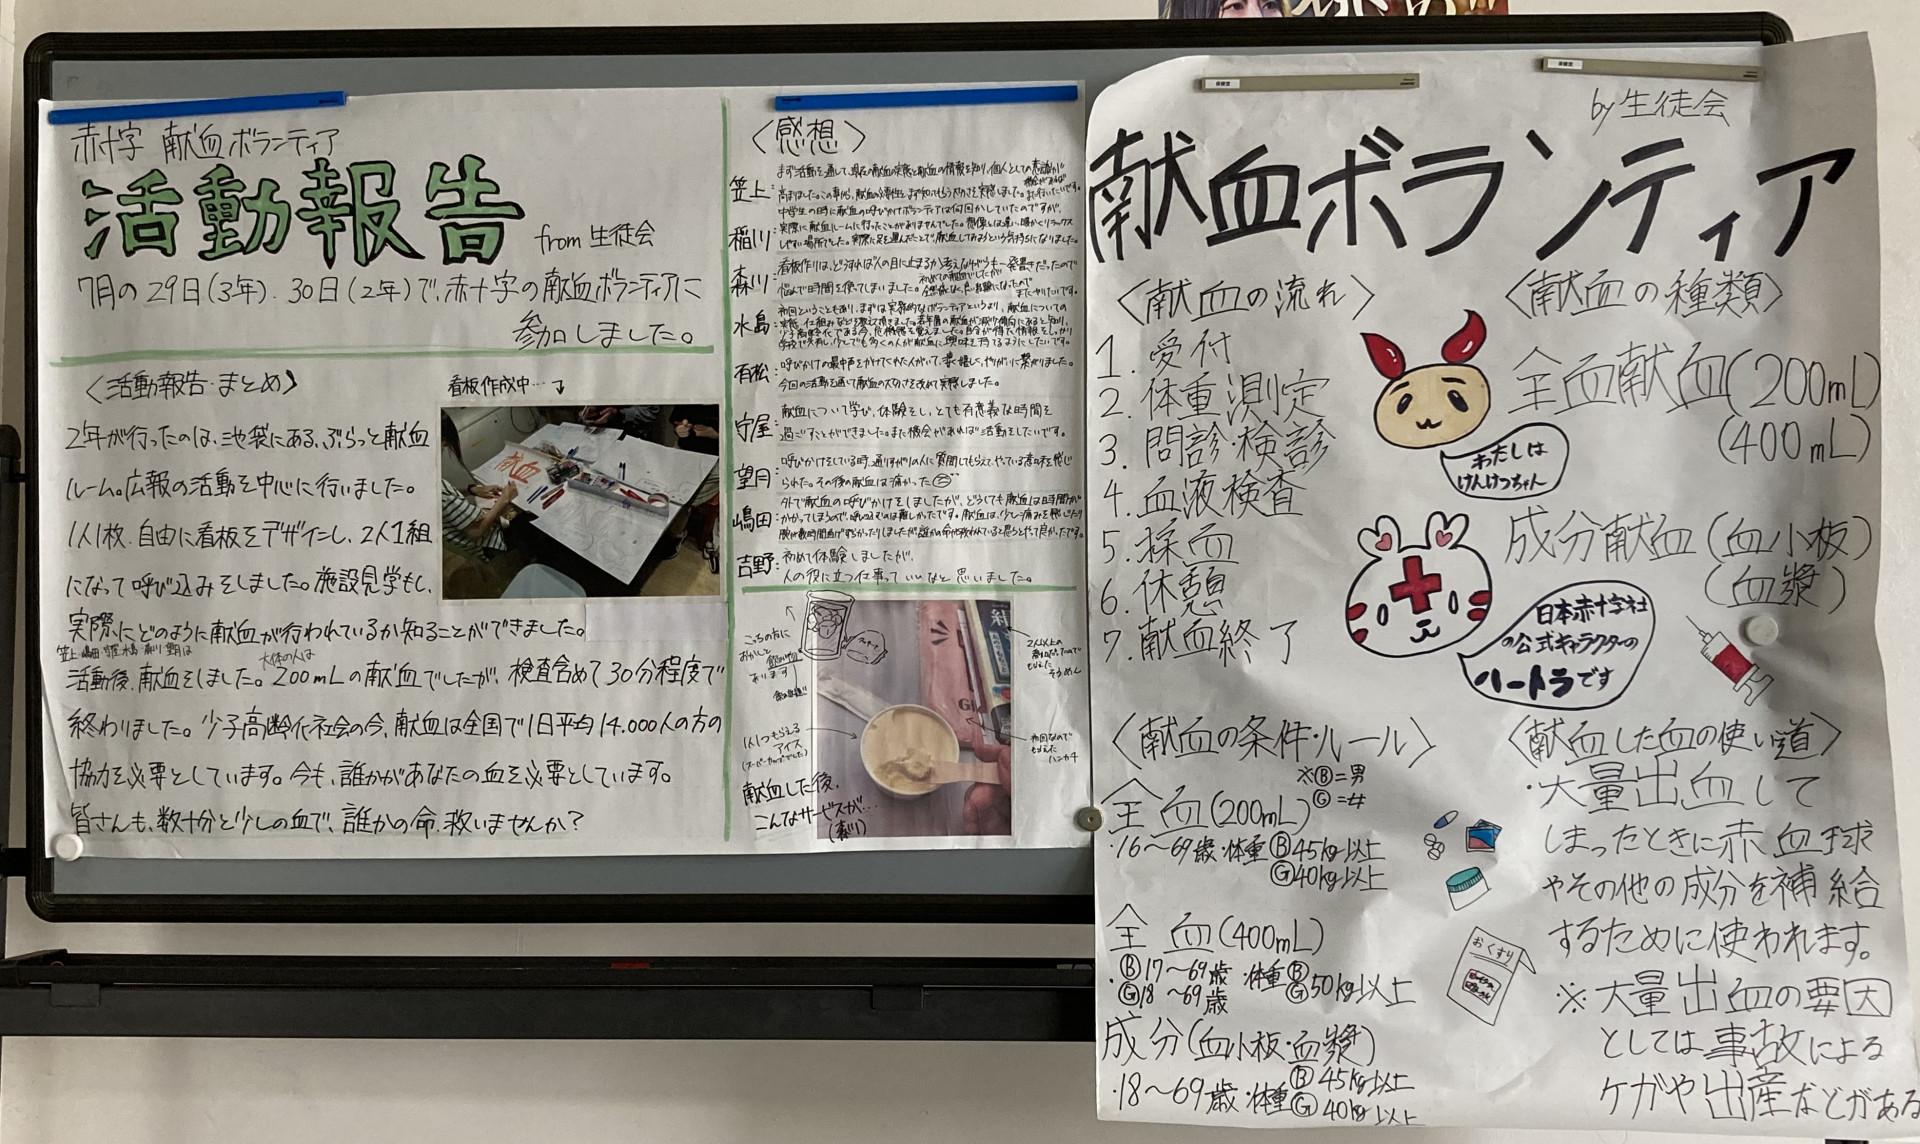 赤十字 献血ボランティア
活動報告
from 生徒会
7月の29日(3年)、30日(2年)で、赤十字の献血ボランティアに
参加しました。
〈活動報告・まとめ〉
看板作成中…
2年が行ったのは、池袋にある、ぶらっと献血
ルーム。広報の活動を中心に行いました。
1人1枚、自由に看板をデザインし、2人1組
になって呼び込みをしました。施設見学もし、
実際にどのように献血が行われているか知ることができました。
大体の人は
活動後、献血をしました。200mLの献血でしたが、検査含めて30分程度で
終わりました。少子高齢化社会の今、献血は全国で1日平均14.000人の方の
協力を必要としています。今も、誰かがあなたの血を必要としています。
皆さんも、数十分と少しの血で、誰かの命、救いませんか？
献血
〈感想〉
笠上:
まず活動を通して、現在の献血の実態と献血の情報を知り、個人としての意識が
高まりました。この事から、献血の必要性をまず知ってもらう大切さを実感しました。
稲川:
中学生の時に献血の呼びかけボランティアは何回かしていたのですが、
実際に献血ルームに行ったことがありませんでした。想像とは違い、暖かくリラックス
しやすい場所でした。実際に足を運んだことで、献血してみようという気持ちになりました。
森川:
看板作りは、どうすれば人の目に止まるか考えながらも一発書きだったので
悩んで時間を使ってしまいました。初めての献血でしたが
またやりたいです。
水島:
初回ということもあり、まずは実務的なボランティアというより、献血についての
学校で共有し、少しでも多くの人が献血に興味を持てるようにしたいです。
有松:
呼びかけの最中声をかけてくれた人がいて、凄く嬉しく、やりがいに繋がりました。
今回の活動を通して献血の大切さを改めて実感しました。
守屋:
献血について学び、体験をし、とても有意義な時間を
過ごすことができました。また機会があれば活動をしたいです。
望月:
呼びかけをしている時、通りすがりの人に質問してもらえて、やっている意味を感じ
られた。その後の献血は痛かった
嶋田:
外で献血の呼びかけをしましたが、どうしても献血は時間が
かかってしまうので、呼び込むのは難しかったです。献血は、少し痛みを感じたり
吉野:
初めて体験しましたが、
人の役に立つ仕事っていいなと思いました。
こっちの方に
おかしと飲み物
あります
1人1つもらえる
アイス
(スーパーカップでした)
2人以上の
そうめん
初回なので
もらえた
ハンカチ
献血した後、
こんなサービスが…
(森川)
by 生徒会
献血ボランティア
〈献血の流れ〉
1. 受付
2. 体重測定
3. 問診・検診
4. 血液検査
5. 採血
6. 休憩
7. 献血終了
〈献血の種類〉
全血献血(200mL)
(400mL)
成分献血(血小板)
(血漿)
わたしは
けんけつちゃん
日本赤十字社
の公式キャラクターの
ハートラです
〈献血の条件・ルール〉
※Ⓑ=男
Ⓖ=女
全血(200mL)
・16～69歳・体重Ⓑ45kg以上
Ⓖ40kg以上
全血(400mL)
・Ⓑ17～69歳・体重Ⓑ
Ⓖ18～69歳 Ⓖ50kg以上
成分(血小板・血漿)
・18～69歳・体重Ⓑ45kg以上
Ⓖ40kg以上
〈献血した血の使い道〉
・大量出血して
しまったときに赤血球
やその他の成分を補給
するために使われます。
※大量出血の要因
としては事故による
ケガや出産などがある
おくすり